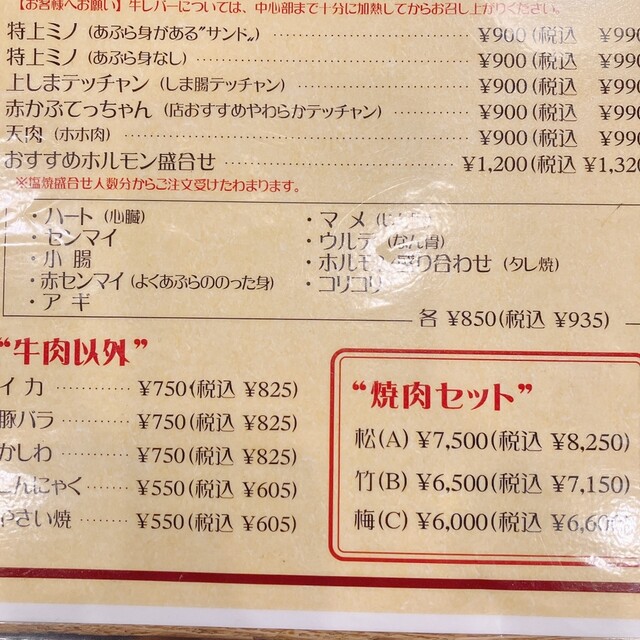 【お客様へお願い】牛レバーについては、中心部まで十分に加熱してからお召し上がりください。
特上ミノ (あぶら身がある〝サンド〟) ¥900(税込 ¥990
特上ミノ (あぶら身なし) ¥900(税込 ¥990
上しまテッチャン (しま腸テッチャン) ¥900(税込 ¥990
赤かぶてっちゃん (店おすすめやわらかテッチャン) ¥900(税込 ¥990
天肉 (ホホ肉) ¥900(税込 ¥990
おすすめホルモン盛合せ ¥1,200(税込 ¥1,320
※塩焼盛合せ人数分からご注文受けたまわります。
・ハート (心臓)
・センマイ
・小腸
・赤センマイ (よくあぶらののった身)
・アギ
・マメ
・ウルテ (なん骨)
・ホルモン盛り合わせ (タレ焼)
・コリコリ
各 ¥850(税込 ¥935)
“牛肉以外”
イカ ¥750(税込 ¥825)
豚バラ ¥750(税込 ¥825)
かしわ ¥750(税込 ¥825)
こんにゃく ¥550(税込 ¥605)
やさい焼 ¥550(税込 ¥605)
“焼肉セット”
松(A) ¥7,500(税込 ¥8,250)
竹(B) ¥6,500(税込 ¥7,150)
梅(C) ¥6,000(税込 ¥6,600)